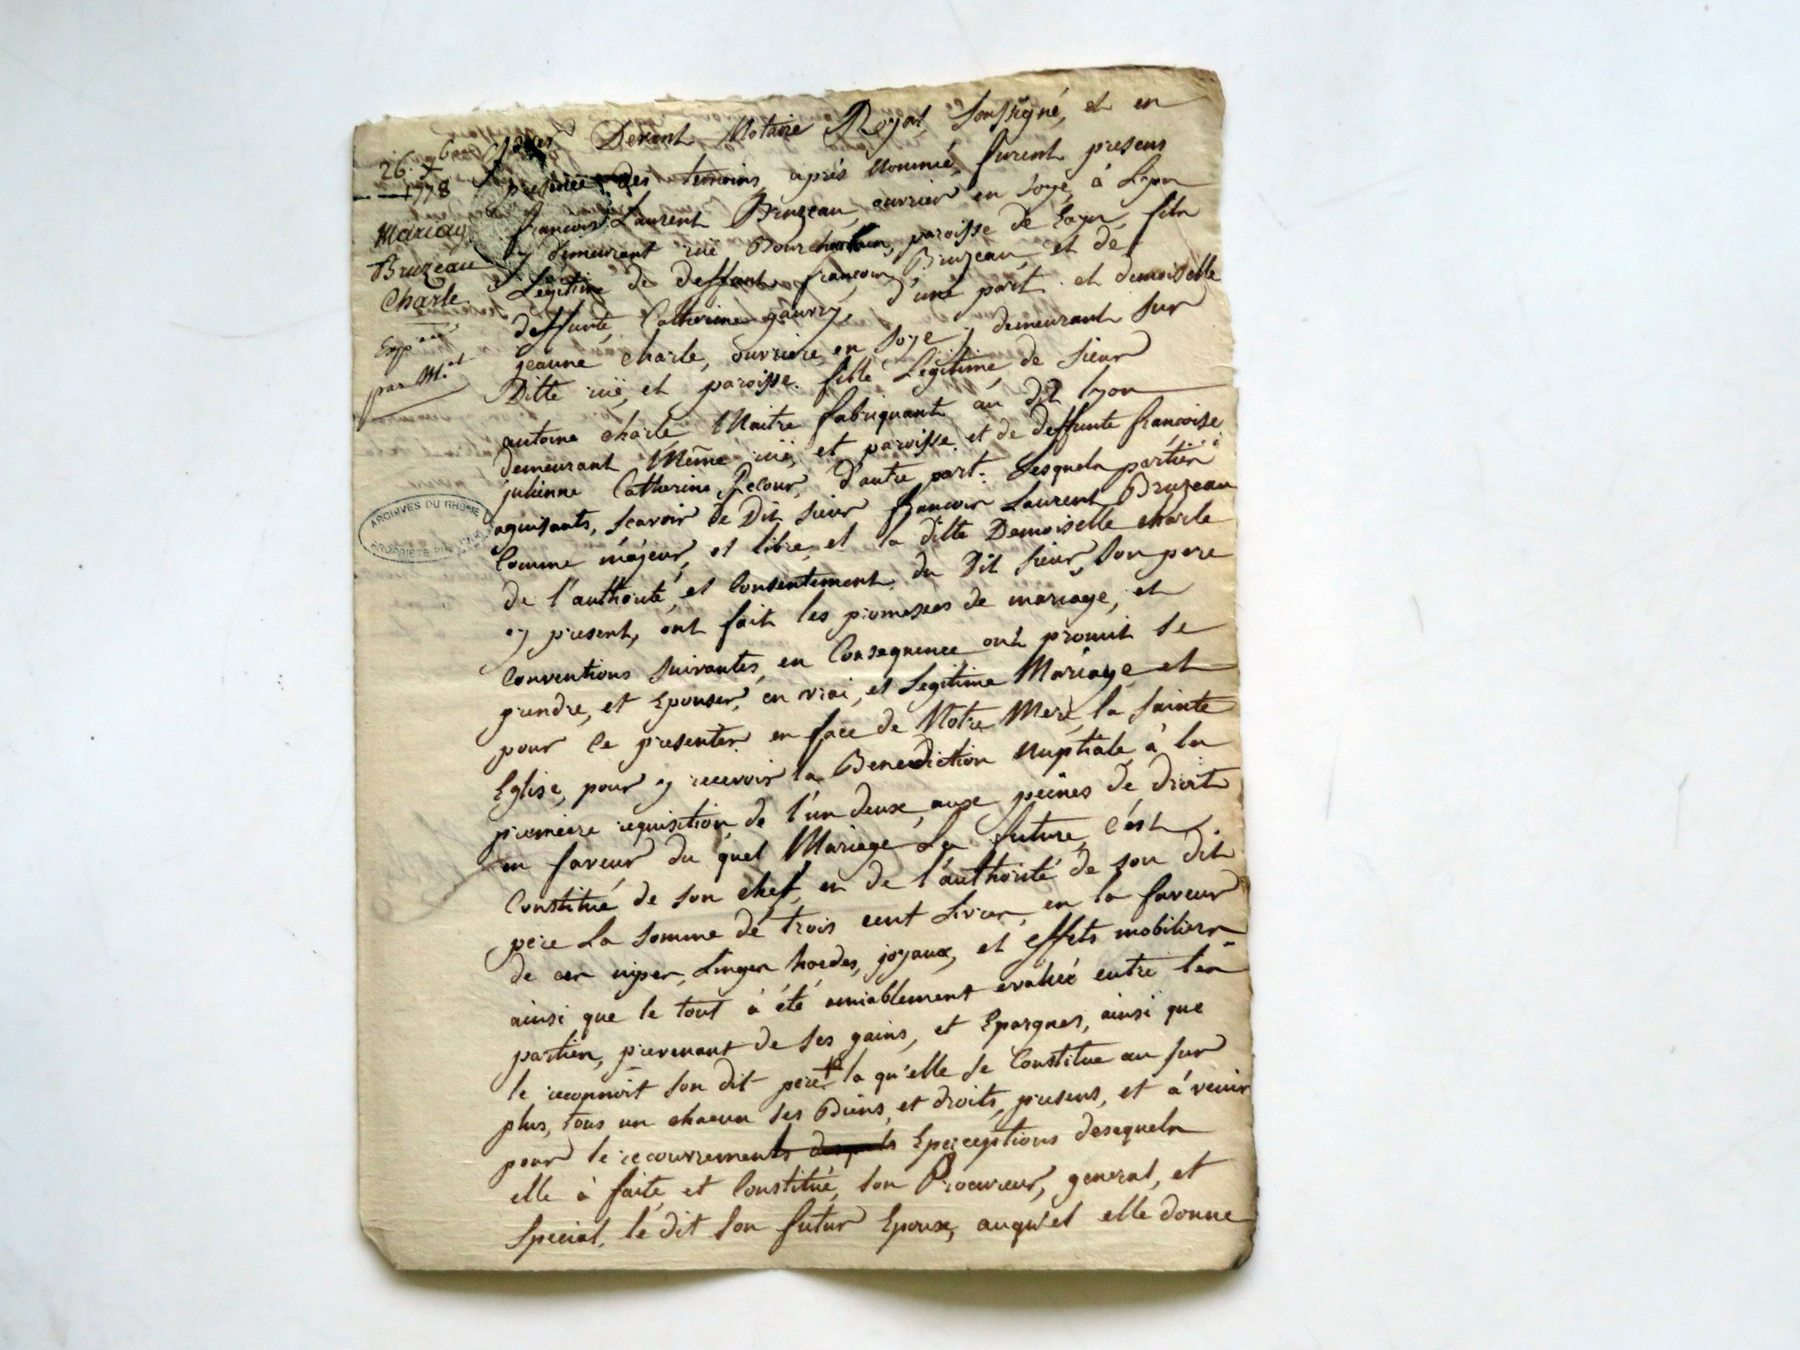 26. 7bre
1778
Mariage
Bruzeau
Charle
Expée
par M. et
ARCHIVES DU RHONE
PROPRIÉTÉ PUBLIQUE
Devant Notaire Royal, soussigné, et en
presence des temoins après nommé, furent presens
françois Laurent Bruzeau, ouvrier en soye, à Lyon
y demeurant rüe Bourchanin, paroisse de fils
Legitime de deffunt françois Bruzeau, et de
deffunte Catherine gauvry, d'une part. et demoiselle
jeanne charle, ouvriere en soye y demeurant sur
Ditte rüe, et paroisse. fille Legitime de sieur
antoine charle Maitre fabriquant au dit lyon
demeurant Même rüe, et paroisse et de deffunte françoise
julienne Catherine Recour, d'autre part. Lesqueln partien
agissants, sçavoir le Dit sieur françoin Laurent Bruzeau
Comme majeur, et libre, et la ditte Demoiselle charle
de l'authorité, et Consentement du Dit sieur, son pere
cy present, ont fait les promesses de mariage, et
Conventions suivantes, en Consequence ont promit se
prendre, et Epouser, en vrai, et Legitime Mariage et
pour ce presenter en face de Notre Mere, la sainte
Eglise, pour y recevoir la Benediction Nuptiale à la
premiere requisition de l'un deux, aux peines de droit
en faveur du quel Mariage La future, c'est
Constitué de son chef, en de l'authorité de son dit
pere La somme de trois cent Livres, en la faveur
de ses niper, Linger hardes, joyaux, et effets mobiliern
ainsi que le tout à été amiablement evalué entre len
partien, provenant de ses gains, et Epargner, ainsi que
le reconnoit son dit pere + la qu'elle se Constitue au sur
plus, tous un chacun ses Biens, et droits, presens, et à venir
pour le recouvrements desquels Eperceptions desequeln
elle à faite, et Constitué, son Procureur, general, et
special, le dit son futur Epoux, auquel elle donne